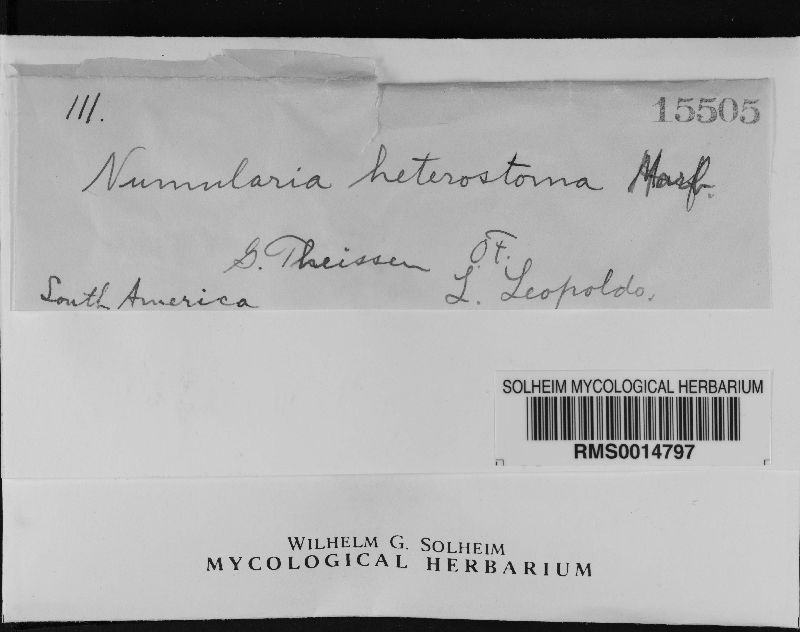 111.
15505
Numularia heterostoma
G. Theissen
South America
L. Leopoldo.
SOLHEIM MYCOLOGICAL HERBARIUM
RMS0014797
WILHELM G. SOLHEIM
MYCOLOGICAL HERBARIUM